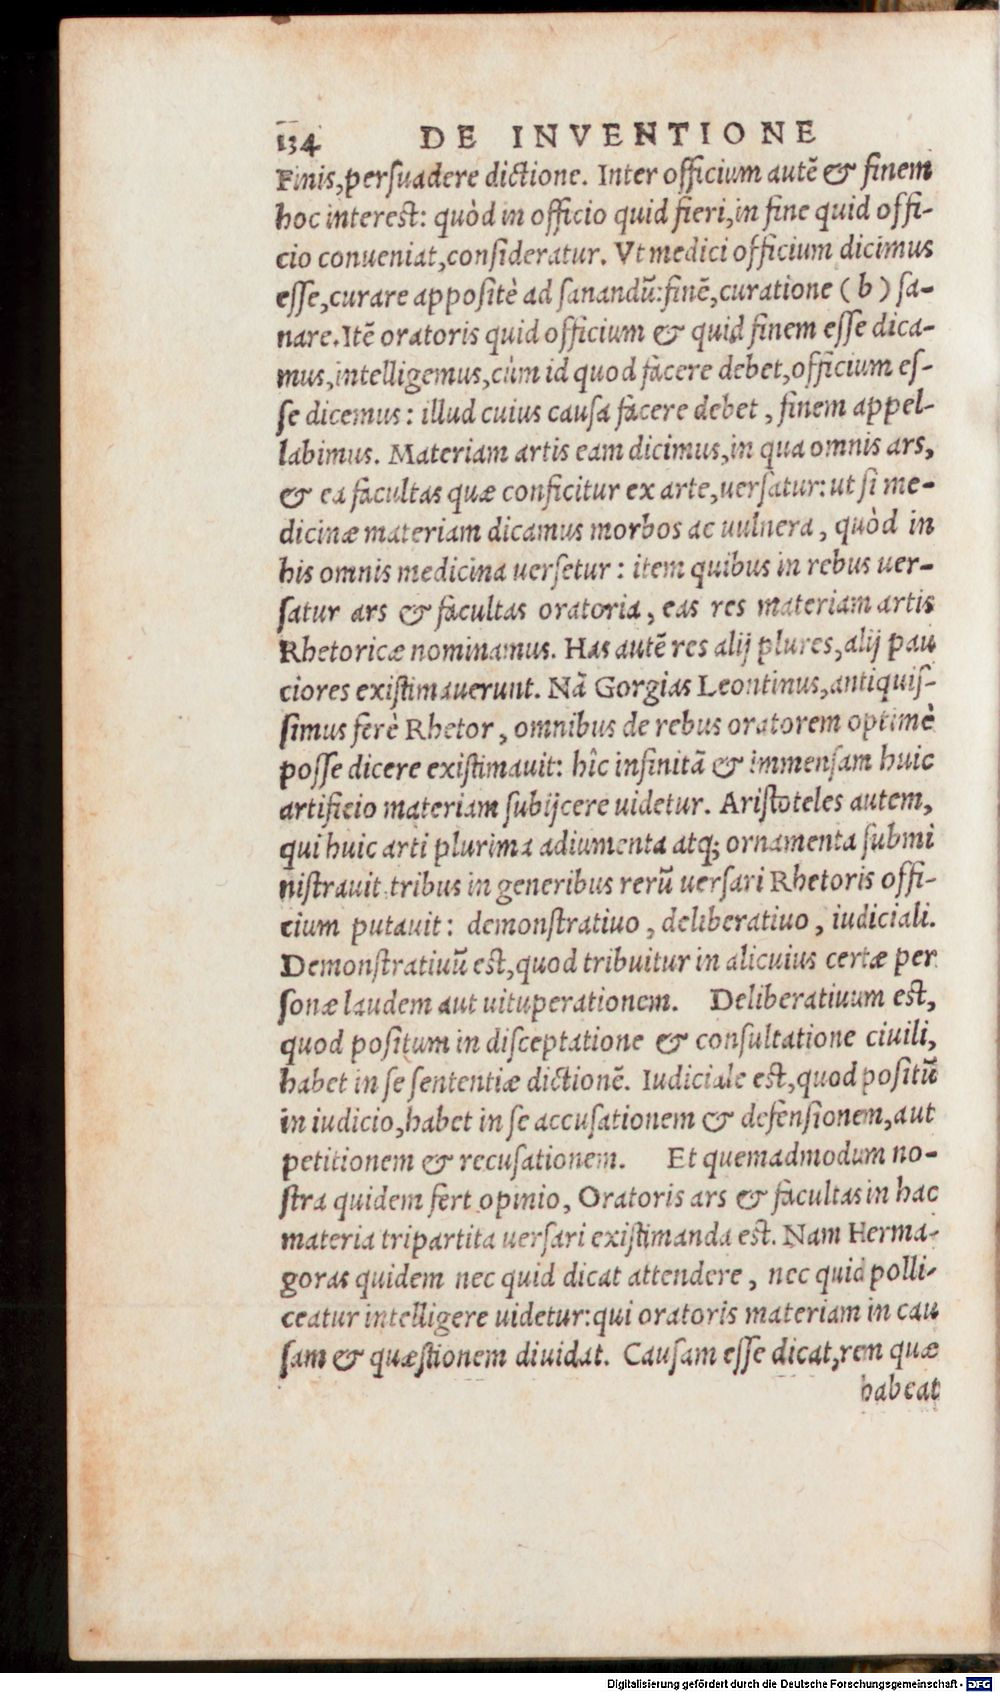 134 DE INVENTIONE
Finis, persuadere dictione. Inter officium autẽ & finem
hoc interest: quòd in officio quid fieri, in fine quid offi-
cio conueniat, consideratur. Vt medici officium dicimus
esse, curare appositè ad sanandũ: finẽ, curatione (b) sa-
nare. Itẽ oratoris quid officium & quid finem esse dica-
mus, intelligemus, cùm id quod facere debet, officium es-
se dicemus: illud cuius causa facere debet, finem appel-
labimus. Materiam artis eam dicimus, in qua omnis ars,
& ea facultas quæ conficitur ex arte, uersatur: ut si me-
dicinæ materiam dicamus morbos ac uulnera, quòd in
his omnis medicina uersetur: item quibus in rebus uer-
satur ars & facultas oratoria, eas res materiam artis
Rhetoricæ nominamus. Has autẽ res alij plures, alij pau
ciores existimauerunt. Nã Gorgias Leontinus, antiquis-
simus ferè Rhetor, omnibus de rebus oratorem optimè
posse dicere existimauit: hîc infinitã & immensam huic
artificio materiam subijcere uidetur. Aristoteles autem,
qui huic arti plurima adiumenta atq; ornamenta submi
nistrauit tribus in generibus rerũ uersari Rhetoris offi-
cium putauit: demonstratiuo, deliberatiuo, iudiciali.
Demonstratiuũ est, quod tribuitur in alicuius certæ per
sonæ laudem aut uituperationem. Deliberatiuum est,
quod positum in disceptatione & consultatione ciuili,
habet in se sententiæ dictionẽ. Iudiciale est, quod positũ
in iudicio, habet in se accusationem & defensionem, aut
petitionem & recusationem. Et quemadmodum no-
stra quidem fert opinio, Oratoris ars & facultas in hac
materia tripartita uersari existimanda est. Nam Herma-
goras quidem nec quid dicat attendere, nec quid polli-
ceatur intelligere uidetur: qui oratoris materiam in cau
sam & quæstionem diuidat. Causam esse dicat, rem quæ
habeat
Digitalisierung gefördert durch die Deutsche Forschungsgemeinschaft - DFG